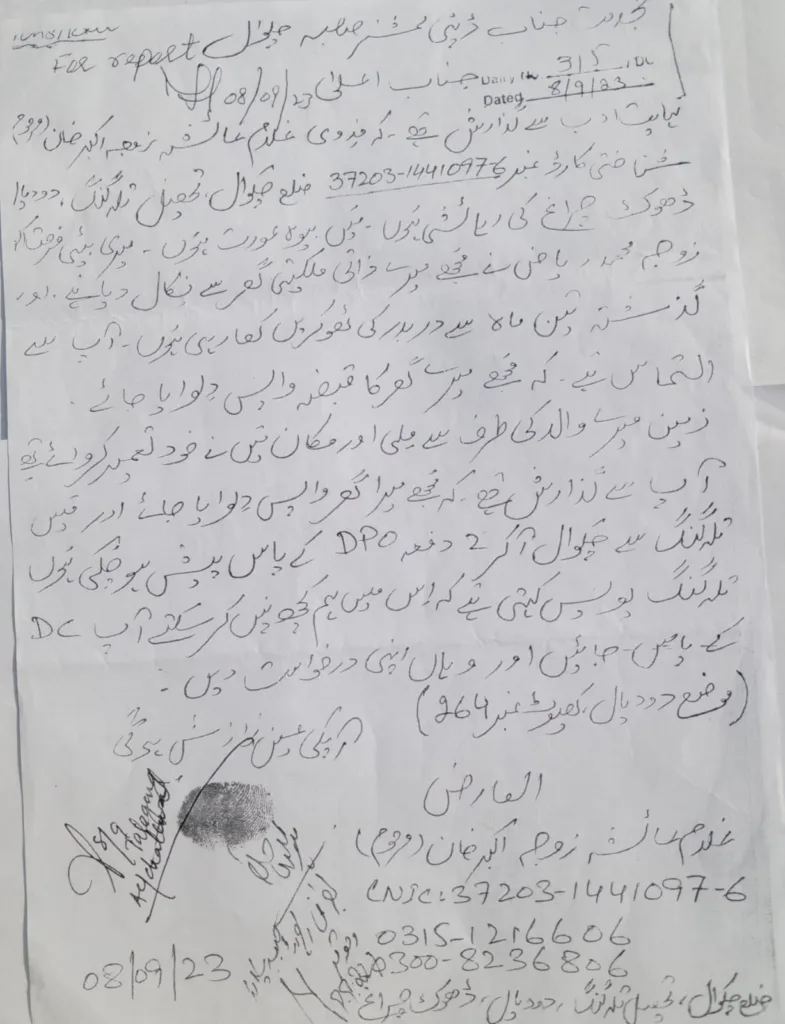 بخدمت جناب ڈپٹی کمشنر صاحبہ چکوال
For report
جناب اعلیٰ
08/09/23
315
Dated 8/9/23
نہایت ادب سے گذارش ہے۔ کہ فدوی غلام عائشہ زوجہ اکبر خان (مرحوم)
شناختی کارڈ نمبر 37203-1441097-6 ضلع چکوال، تحصیل تلہ گنگ، دودیال
ڈھوک چراغ کی رہائشی ہوں۔ میں بیوہ عورت ہوں۔ میری بیٹی
زوجہ محمد ریاض نے مجھے میرے ذاتی ملکیتی گھر سے نکال دیا ہے۔ اور
گذشتہ تین ماہ سے دربدر کی ٹھوکریں کھا رہی ہوں۔ آپ سے
التماس ہے۔ کہ مجھے میرے گھر کا قبضہ واپس دلوایا جائے۔
زمین میرے والد کی طرف سے ملی اور مکان میں نے خود تعمیر کروائے ہے
آپ سے گذارش ہے۔ کہ مجھے میرا گھر واپس دلوایا جائے اور میں
تلہ گنگ سے چکوال آ کر 2 دفعہ DPO کے پاس پیش ہو چکی ہوں
تلہ گنگ پولیس کہتی ہے کہ اس میں ہم کچھ نہیں کر سکتے آپ DC
کے پاس جائیں اور وہاں اپنی درخواست دیں۔
(موضع دودیال، کھیوٹ نمبر 264)
آپکی عین نوازش ہوگی
العارض
غلام عائشہ زوجہ اکبر خان (مرحوم)
CNIC: 37203-1441097-6
0315-1216606
0300-8236806
08/09/23
ضلع چکوال، تحصیل تلہ گنگ، دودیال، ڈھوک چراغ